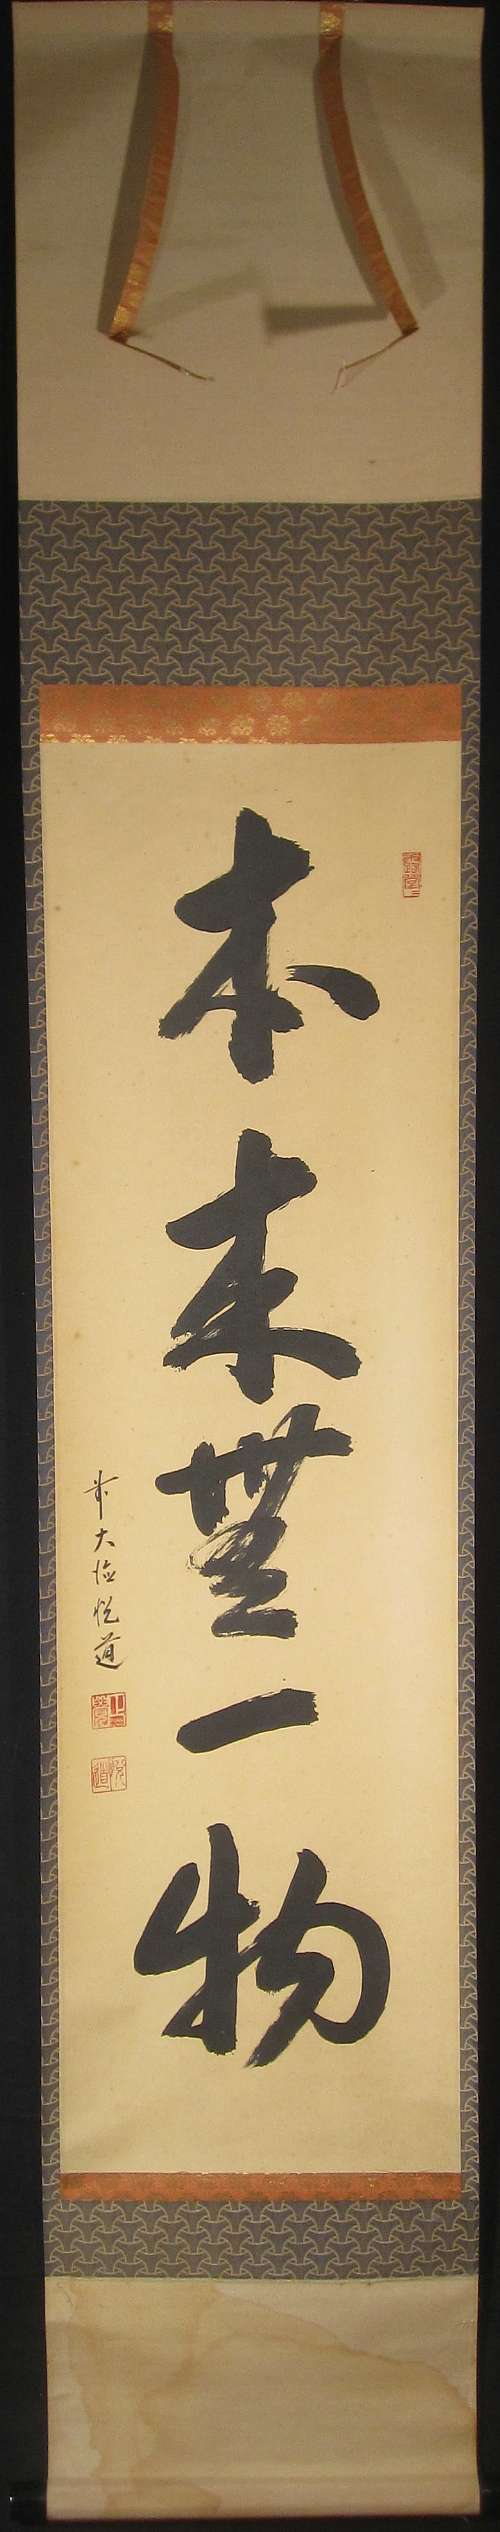 本来無一物
前大徳悦道